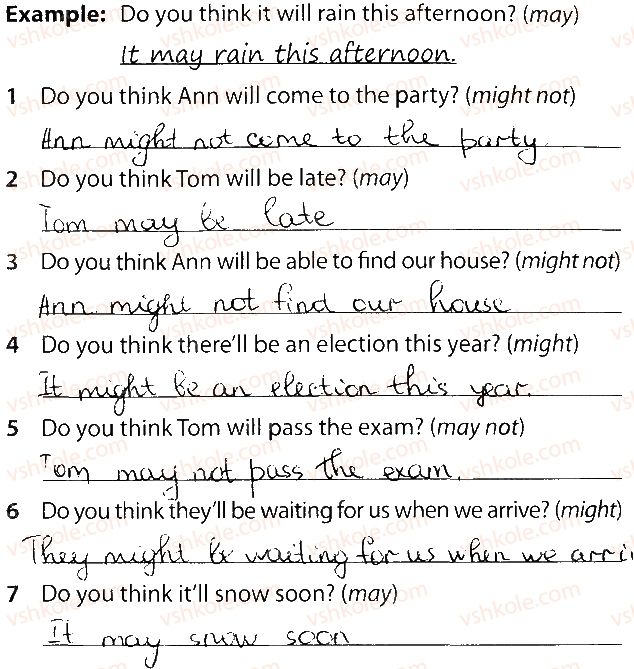 Example: Do you think it will rain this afternoon? (may)
It may rain this afternoon.
1 Do you think Ann will come to the party? (might not)
Ann might not come to the party.
2 Do you think Tom will be late? (may)
Tom may be late
3 Do you think Ann will be able to find our house? (might not)
Ann might not find our house
4 Do you think there'll be an election this year? (might)
It might be an election this year.
5 Do you think Tom will pass the exam? (may not)
Tom may not pass the exam.
6 Do you think they'll be waiting for us when we arrive? (might)
They might be waiting for us when we arri
7 Do you think it'll snow soon? (may)
It may snow soon